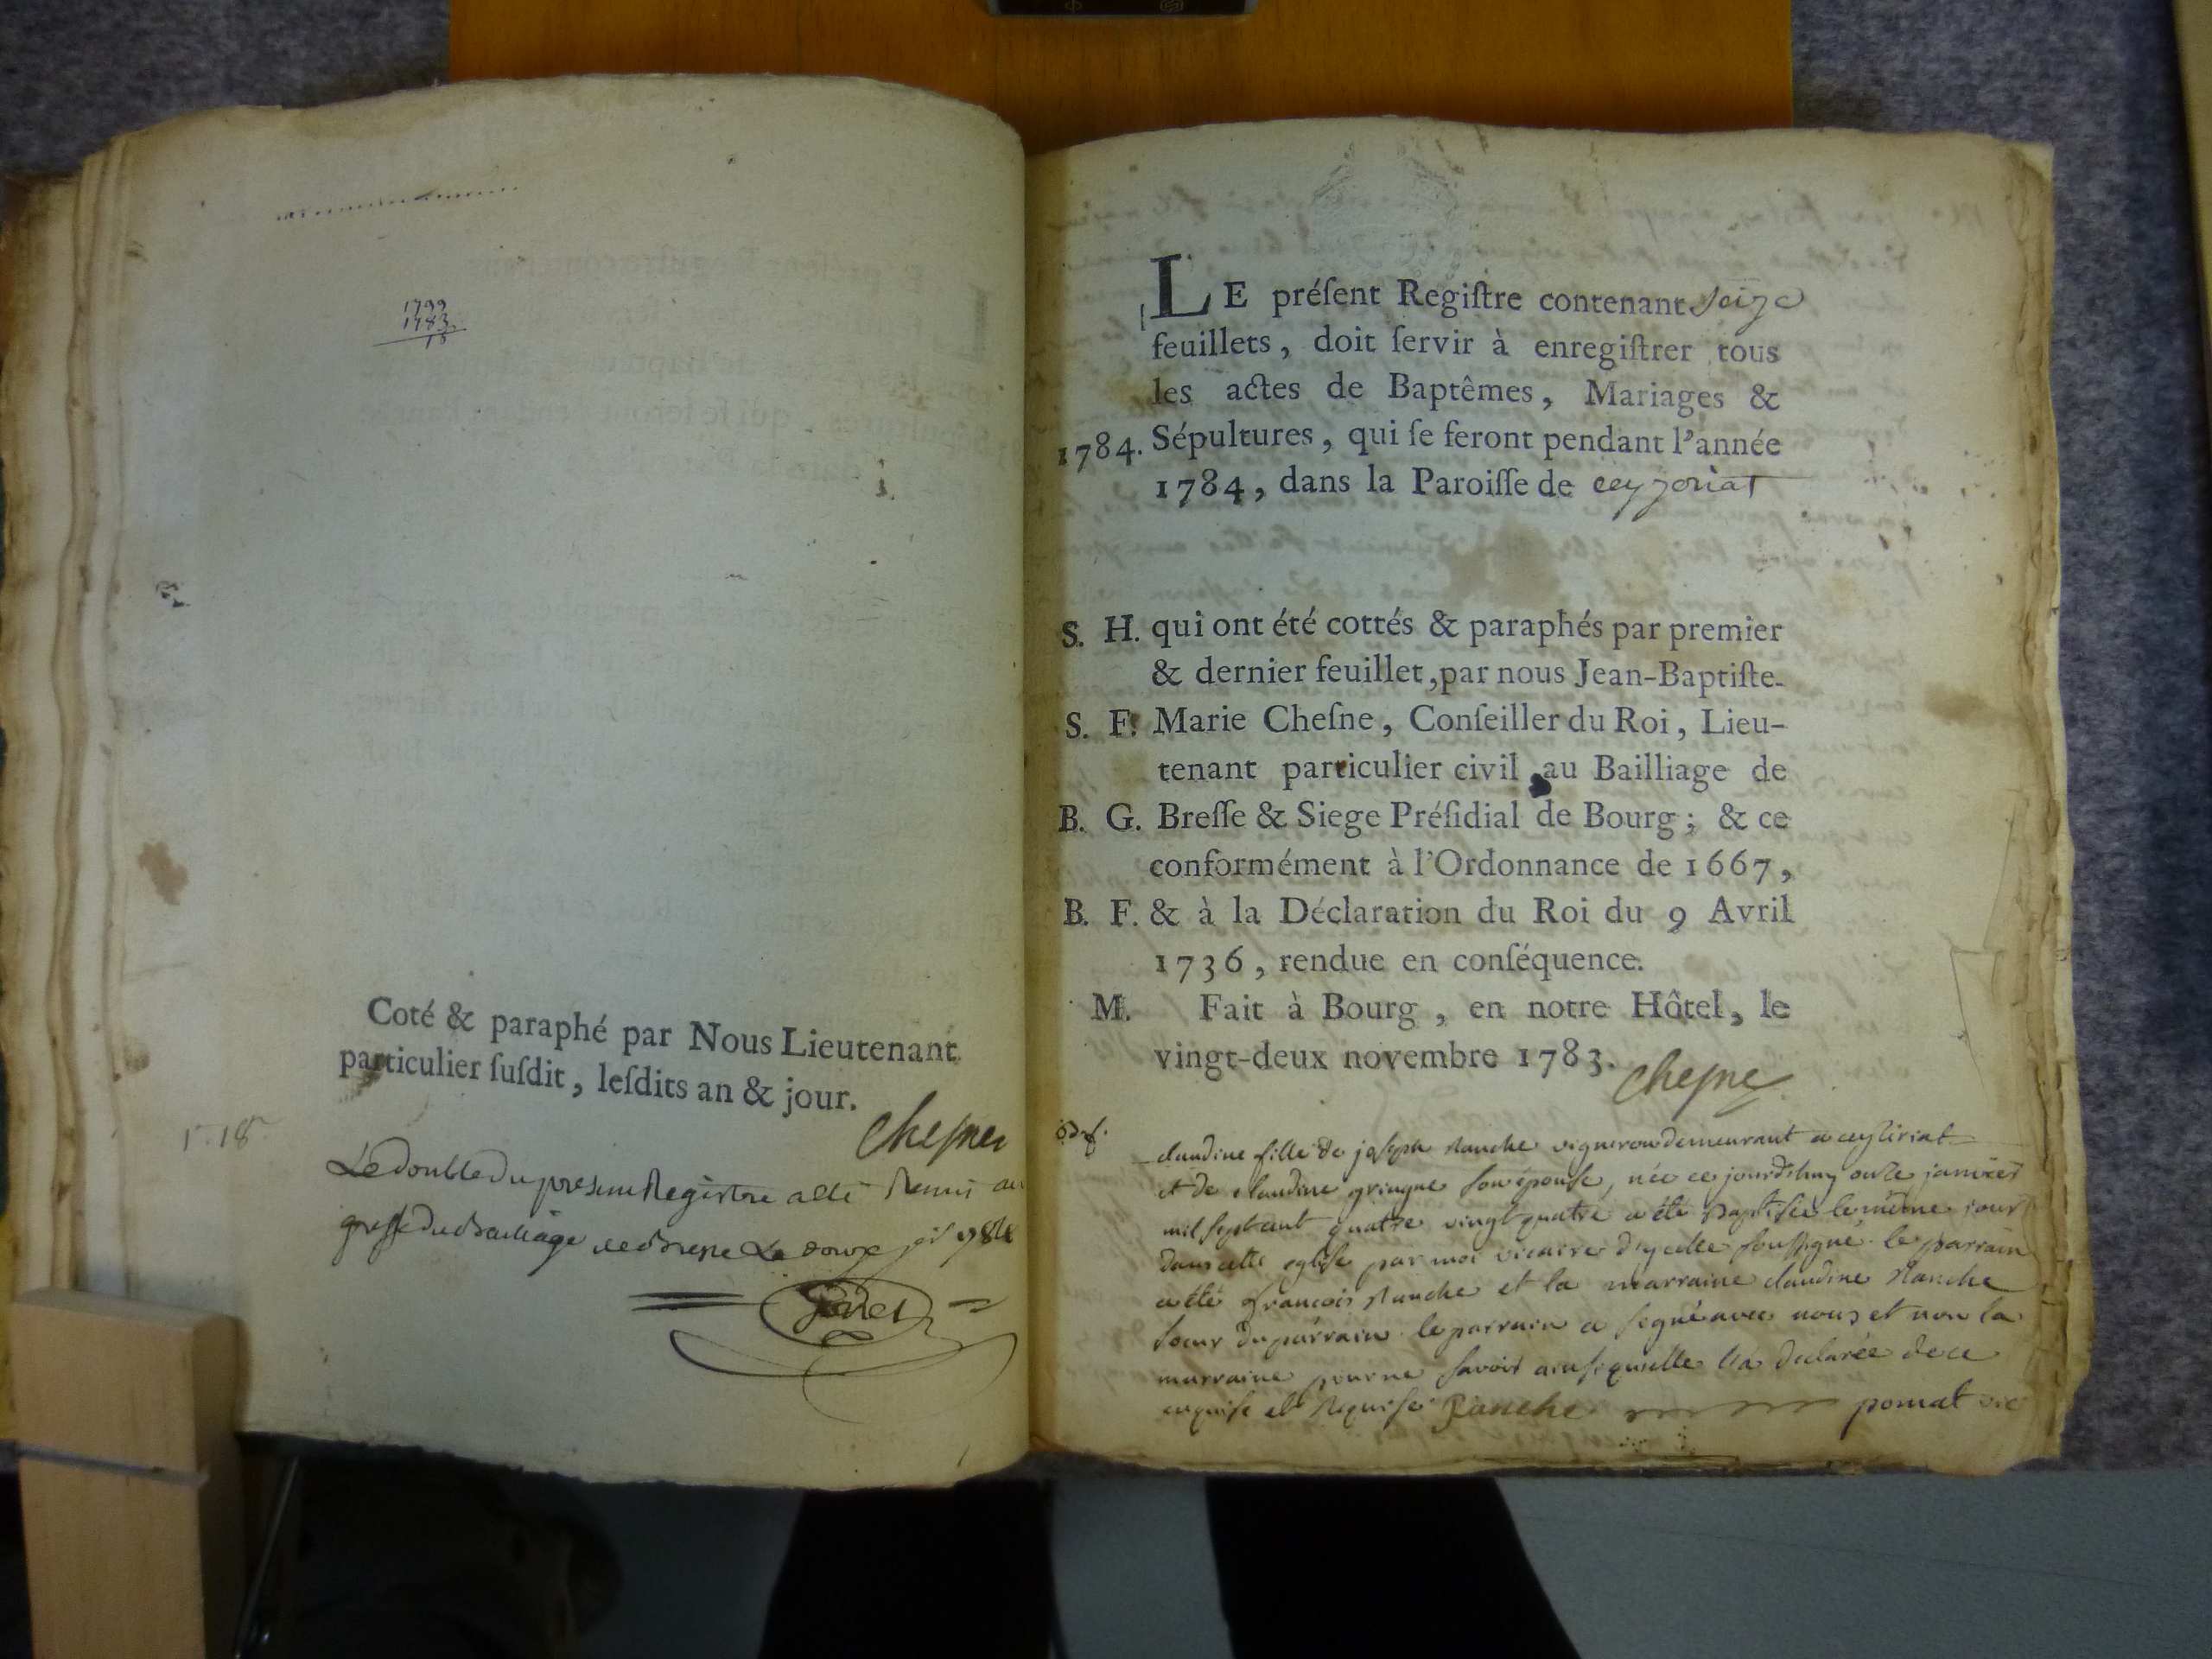 1799
1783
18
Coté & paraphé par Nous Lieutenant
particulier ſuſdit, leſdits an & jour.
Chesne
1. 18
Le double du present Registre a été Remis au
greffe du Bailliage de Bresse Le douze 1784
LE préſent Regiſtre contenant seize
feuillets, doit ſervir à enregiſtrer tous
les actes de Baptêmes, Mariages &
1784. Sépultures, qui ſe feront pendant l'année
1784, dans la Paroiſſe de ceyzeriat
S. H. qui ont été cottés & paraphés par premier
& dernier feuillet, par nous Jean-Baptiſte-
S. F. Marie Cheſne, Conſeiller du Roi, Lieu-
tenant particulier civil au Bailliage de
B. G. Breſſe & Siege Préſidial de Bourg; & ce
conformément à l'Ordonnance de 1667,
B. F. & à la Déclaration du Roi du 9 Avril
1736, rendue en conſéquence.
M. Fait à Bourg, en notre Hôtel, le
vingt-deux novembre 1783.
Chesne
claudine fille de joseph vigneron demeurant a ceyziriat
et de claudine son épouse, née ce jourdhuy onze janvier
mil sept cent quatre vingt quatre a été Baptisée le même jour
dans cette eglise par moi vicaire d'ycelle soussigné le parrain
a été françois et la marraine claudine
soeur du parrain le parrain a signé avec nous et non la
marraine pour ne savoir ainsi quelle l'a declarée de ce
enquise et Requise pomat vic